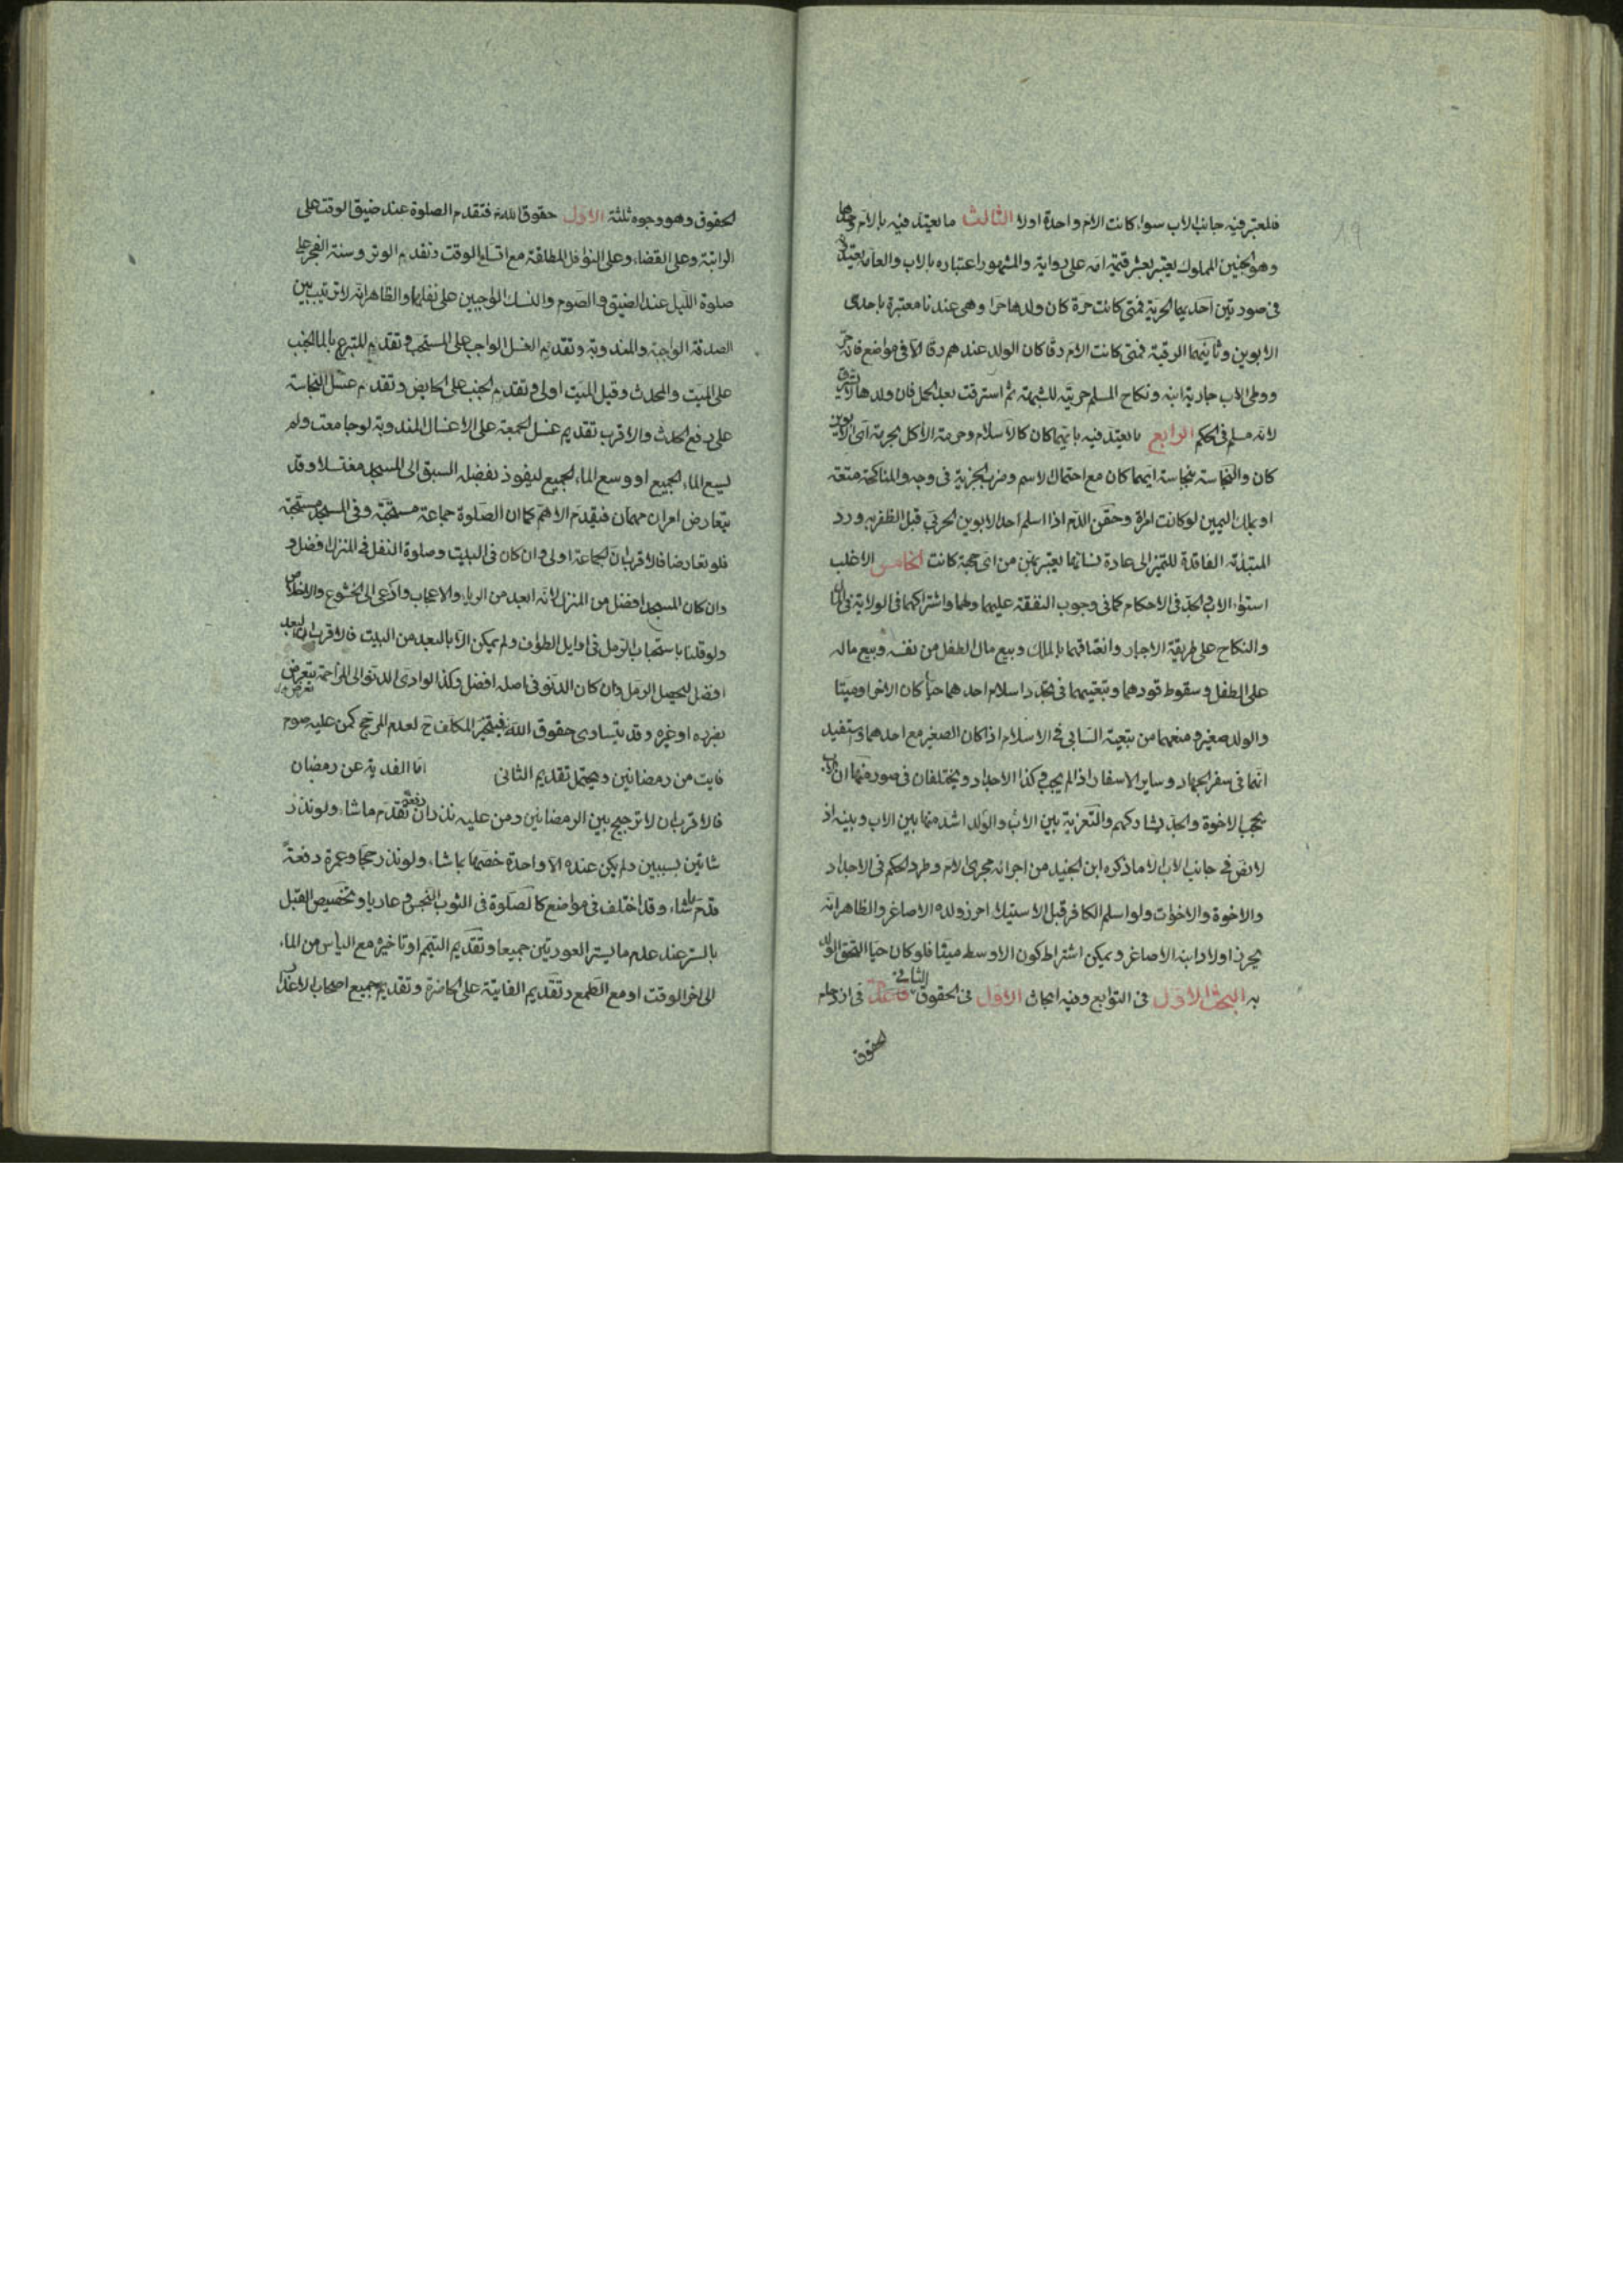 فلمعتبر فيه جانب الاب سواء كانت الام واحدة اولا الثالث ما يعتبر فيه بالام وحدها
وهو الجنين المملوك يعتبر بعشر قيمة امه على رواية والمشهور اعتباره بالاب والعامة يعتبرون
فى صورتين احديهما الحرية فمتى كانت حرة كان ولدها حرا وهى عندنا معتبرة باحدى
الابوين وثانيتهما الرقية فمتى كانت الام رقا كان الولد عندهم رقا الا فى مواضع فانه حر
ووطى الاب جارية ابنه ونكاح المسلم حربية للشبهة ثم استرقت بعد الحمل فان ولدها لا يسترق
لانه مسلم فى الحكم الرابع ما يعتبر فيه بايهما كان كالاسلام وحرمة الاكل لحرمة اى الابوين
كان والنجاسة بنجاسة ايهما كان مع احتمال الاسم وضرب الجزية فى وجه والمناكحة متعة
او بملك اليمين لو كانت امرة وحقن الدم اذا اسلم احد الابوين الحربى قبل الظفر به ورد
المبتداه الفاقدة للتميز الى عادة نسائها يعتبر بهن من اى جهة كانت الخامس الاغلب
استواء الاب والجد فى الاحكام كما فى وجوب النفقة عليهما ولهما واشتراكهما فى الولاية فى المال
والنكاح على طريقة الاجبار وانعتاقهما بالملك وبيع مال الطفل من نفسه وبيع ماله
على الطفل وسقوط قودهما وتبعيتهما فى تجدد اسلام احدهما حيا كان الاخر او ميتا
والولد صغير ومنعهما من تبعية السابى فى الاسلام اذا كان الصغير مع احدهما وتستفيد
انهما فى سفر الجهاد وساير الاسفار اذا لم يجب وكذا الاجداد ويختلفان فى صور منها ان الاب
يحجب الاخوة والجد يشاركهم والتعزية بين الاب والولد اشد منها بين الاب وبينه اذ
لا نص فى جانب الاب الا ما ذكره ابن الجنيد من اجرائه مجرى الام وطرد الحكم فى الاجداد
والاخوة والاخوات ولو اسلم الكافر قبل الاستيلاء احرز ولده الاصاغر والظاهر انه
يحرز اولاد ابنه الاصاغر ويمكن اشتراط كون الاوسط ميتا فلو كان حيا التحق الولد
به البحث الاول فى التوابع وفيه ابحاث الاول فى الحقوق الثانى قاعدة فى ازدحام
الحقوق
الحقوق وهو وجوه ثلثة الاول حقوق الله فتقدم الصلوة عند ضيق الوقت على
الراتبة وعلى القضاء وعلى النوافل المطلقة مع اتساع الوقت وتقديم الوتر وسنة الفجر على
صلوة الليل عند الضيق والصوم والنسك الواجبين على نفلهما والظاهر انه لا ترتيب بين
الصدقة الواجبة والمندوبة وتقديم الغسل الواجب على المستحب وتقديم المتبرع بالماء الجنب
على الميت والمحدث وقيل الميت اولى وتقديم الجنب على الحايض وتقديم غسل النجاسة
على رفع الحدث والاقرب تقديم غسل الجمعة على الاغسال المندوبة لو جامعت ولم
يسع الماء الجميع او وسع الماء الجميع ليفوز بفضله السبق الى المسجد مغتسلا وقد
يتعارض امران مهمان فيقدم الاهم كما ان الصلوة جماعة مستحبة وفى المسجد مستحبة
فلو تعارضا فالاقرب ان الجماعة اولى وان كان فى البيت وصلوة النفل فى المنزل افضل و
وان كان المسجد افضل من المنزل لانه ابعد من الرياء والاعجاب وادعى الى الخشوع والاخلاص
ولو قلنا باستحباب الرمل فى اوايل الطواف ولم يمكن الا بالبعد من البيت فالاقرب ان البعد
افضل ليحصل الرمل وان كان الدنو فى اصله افضل وكذا لو ادى الدنو الى المزاحمة بتعرض
بضرره او غيره وقد يتساوى حقوق الله فيتخير المكلف ح لعدم المرجح كمن عليه صوم
فايت من رمضانين ويحتمل تقديم الثانى اما الفدية عن رمضان
فالاقرب ان لا ترجيح بين الرمضانين ومن عليه نذران دفعة تقدم ما شاء ولو نذر
شاتين بسببين ولم يكن عنده الا واحدة خصها بما شاء ولو نذر حجا وعمرة دفعة
قدم ما شاء وقد اختلف فى مواضع كالصلوة فى الثوب النجس وعاريا وتخصيص القبل
بالستر عند عدم ما يستر العورتين جميعا وتقديم التيمم او تاخيره مع الياس من الماء
الى اخر الوقت او مع الطمع وتقديم الفايتة على الحاضرة وتقديم جميع اصحاب الاعذار